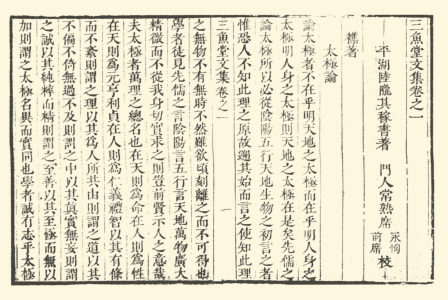 三魚堂文集卷之一
平湖陸隴其稼書著 門人常熟席
永恂
前席
校
雜著
太極論
論太極者不在乎明天地之太極而在乎明人身之
太極明人身之太極則天地之太極在是矣先儒之
論太極所以必從陰陽五行天地生物之初言之者
惟恐人不知此理之原故遡其始而言之使知此理
之無物不有無時不然雖欲頃刻離之而不可得也
學者徒見先儒之言陰陽言五行言天地萬物廣大
精微而不從我身切實求之則豈前賢示人之意哉
夫太極者萬理之總名也在天則為命在人則為性
在天則為元亨利貞在人則為仁義禮智以其有條
而不紊則謂之理以其為人所共由則謂之道以其
不偏不倚無過不及則謂之中以其真實無妄則謂
之誠以其純粹而精則謂之至善以其至極而無以
加則謂之太極名異而實同也學者誠有志乎太極
三魚堂文集卷之一